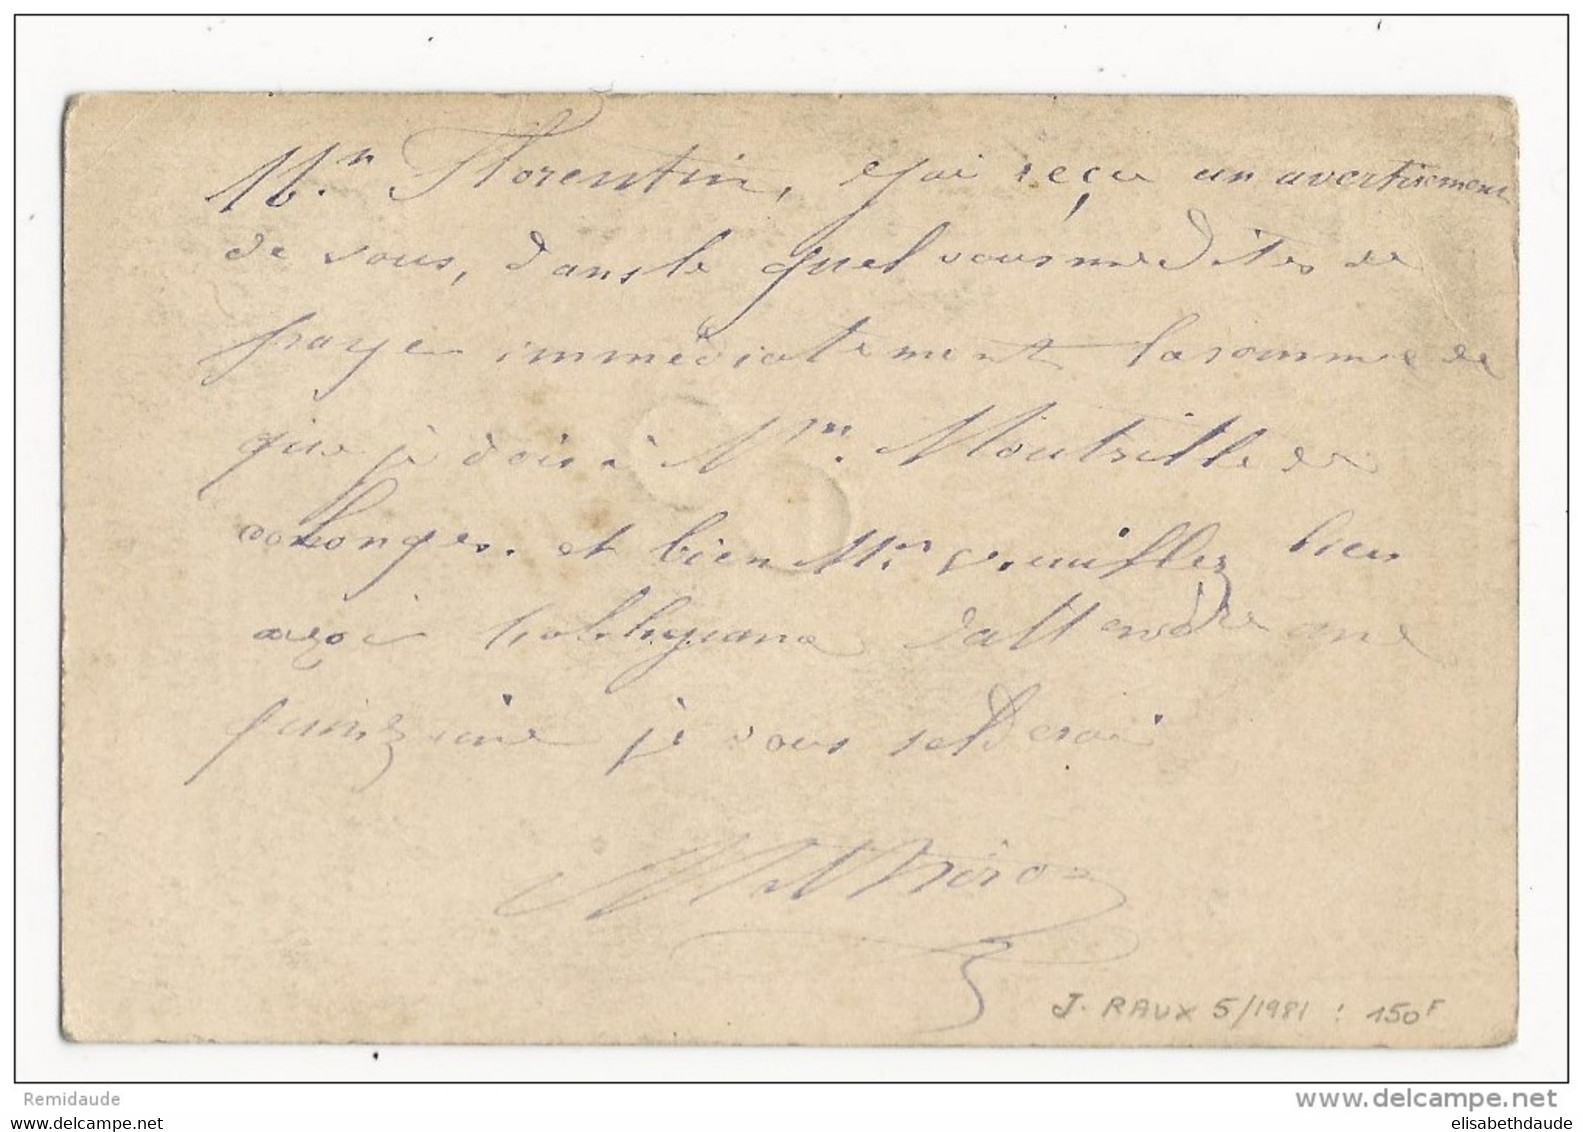 Mr. Florentin, j'ai reçu un avertisement
de vous, dansle quel vousmedites de
paye immédiatement lasomme de
que je dois à Mr. Moutrille de
Colonges. et bien Mr veuillez bien
avoir l'obligeance dattendre une
quinzaine je vous solderai
J. RAUX 5/1981 : 150F
Remidaude
www.delcampe.net
elisabethdaude